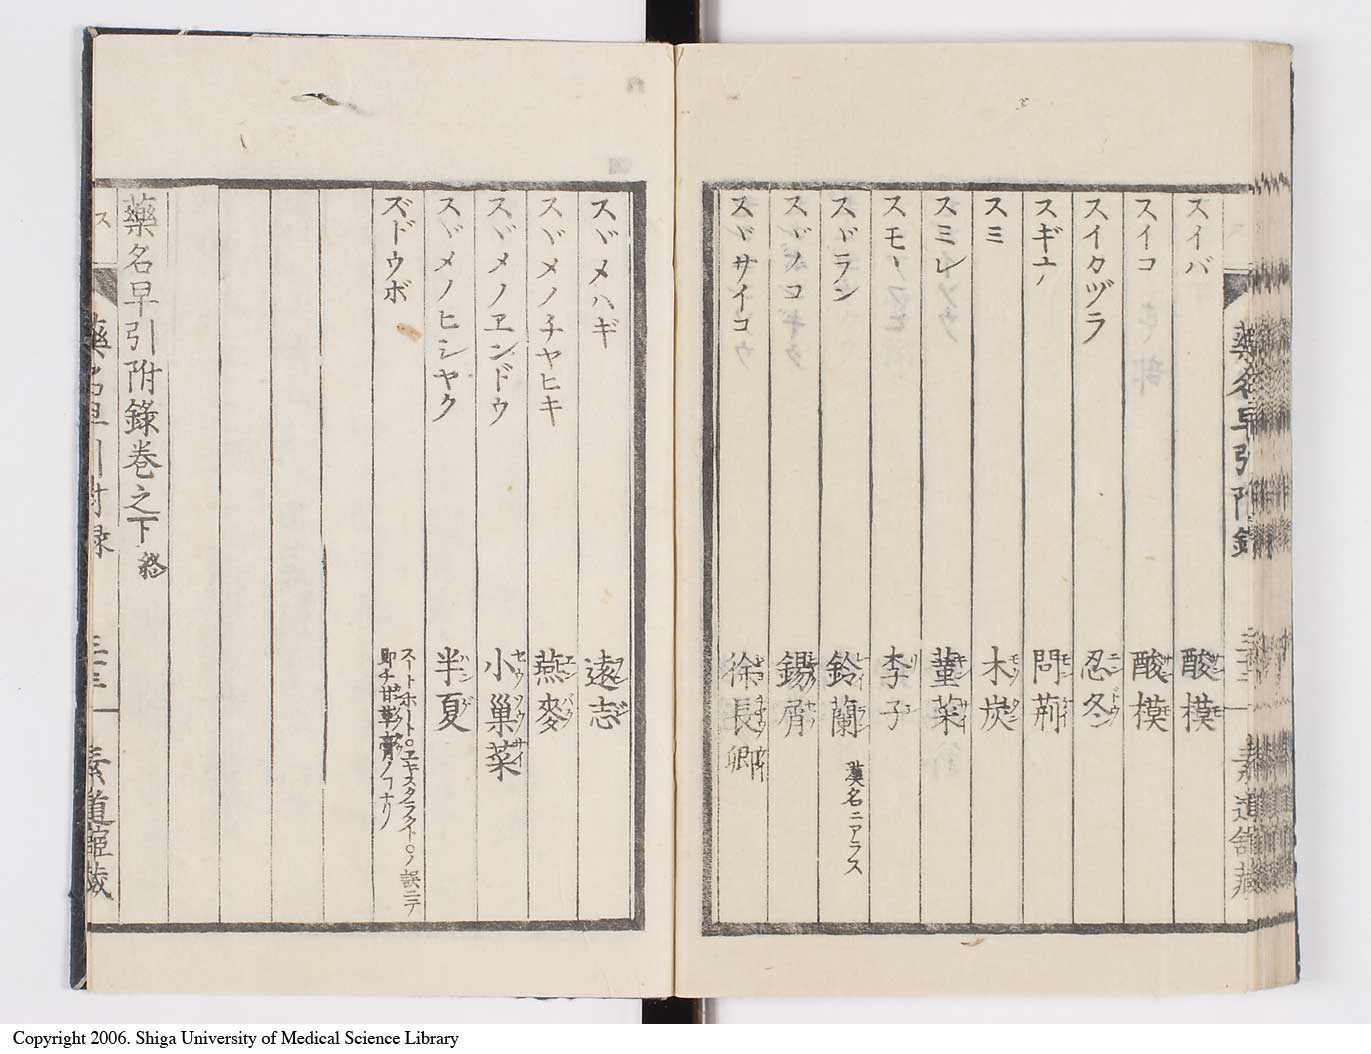 スイバ 酸模
スイコ 酸模
スイカヅラ 忍冬
スギユノ 問荊
スミ 木炭
スミレ 菫菜
スモヽ 李子
スヾラン 鈴蘭 漢名ニアラス
スヾノコ 錫屑
スヾサイコ 徐長卿
スヾメハギ 遠志
スヾメノチヤヒキ 燕麥
スヾメノヱンドウ 小巢菜
スヾメノヒシヤク 半夏
ズドウボ スートホート゚エキスタラクト゚ノ誤ニテ
即チ甘草膏ノヿナリ
藥名早引附錄卷之下終
ス 藥名早引附録 三十三 素道舘藏
Copyright 2006. Shiga University of Medical Science Library